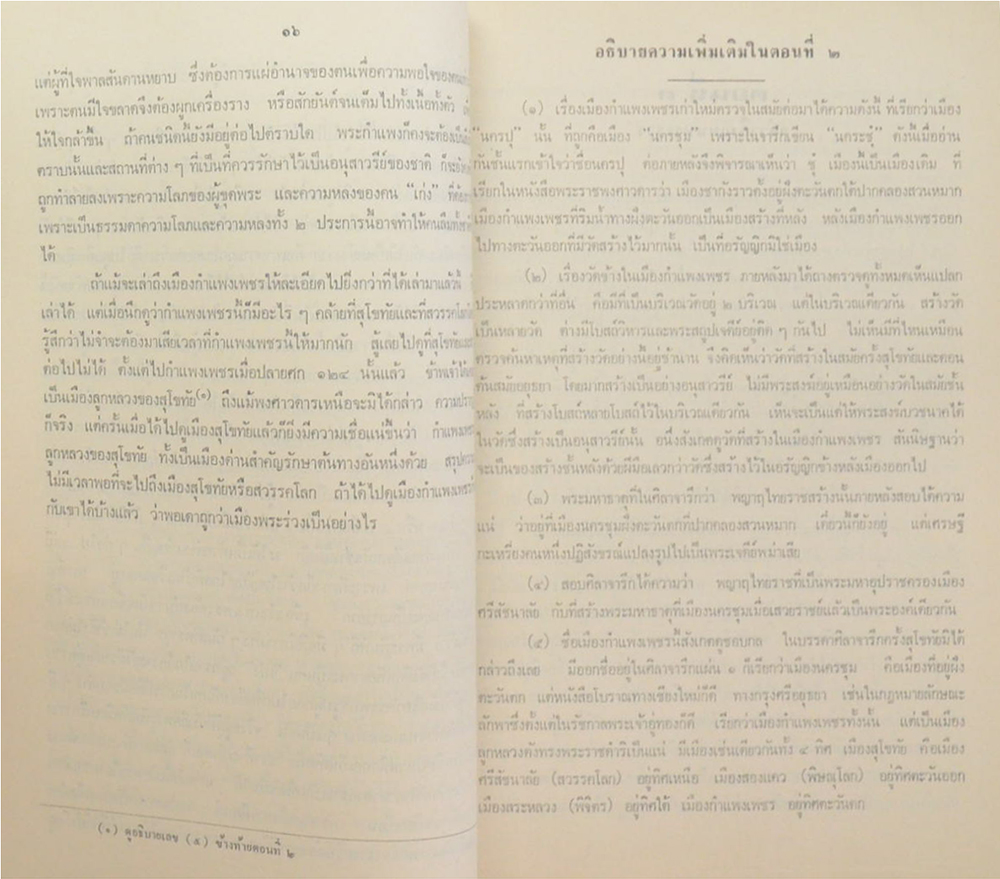 ๑๖
แต่ผู้ที่ใจพาลสันดานหยาบ ซึ่งต้องการแผ่อำนาจของตนเพื่อความพอใจของตน
เพราะตนมีใจขลาดจึงต้องผูกเครื่องราง หรือสักยันต์จนเต็มไปทั้งเนื้อทั้งตัว
ให้ใจกล้าขึ้น ถ้าคนชนิดนี้ยังมีอยู่ต่อไปตราบใด พระกำแพงก็คงจะต้อง
ตราบนั้นและสถานที่ต่าง ๆ ที่เป็นที่ควรรักษาไว้เป็นอนุสาวรีย์ของชาติ ก็จะ
ถูกทำลายลงเพราะความโลภของผู้ขุดพระ และความหลงของคน “เก่ง” ที่
เพราะเป็นธรรมดาความโลภและความหลงทั้ง ๒ ประการนี้อาจทำให้คนลืม
ได้
ถ้าแม้จะเล่าถึงเมืองกำแพงเพชรให้ละเอียดไปยิ่งกว่าที่ได้เล่ามาแล้วนี้
เล่าได้ แต่เมื่อนึกดูว่ากำแพงเพชรนี้ก็มีอะไร ๆ คล้ายที่สุโขทัยและที่สวรรคโลก
รู้สึกว่าไม่จำจะต้องมาเสียเวลาที่กำแพงเพชรนี้ให้มากนัก สู้เลยไปดูที่สุโขทัย
ต่อไปไม่ได้ ตั้งแต่ไปกำแพงเพชรเมื่อปลายศก ๑๒๔ นั้นแล้ว ข้าพเจ้าได้
เป็นเมืองลูกหลวงของสุโขทัย(๑) ถึงแม้พงศาวดารเหนือจะมิได้กล่าว ความ
ก็จริง แต่ครั้นเมื่อได้ไปดูเมืองสุโขทัยแล้วก็ยิ่งมีความเชื่อแน่ขึ้นว่า กำแพงเพชร
ลูกหลวงของสุโขทัย ทั้งเป็นเมืองด่านสำคัญรักษาต้นทางอันหนึ่งด้วย สรุปความ
ไม่มีเวลาพอที่จะไปถึงเมืองสุโขทัยหรือสวรรคโลก ถ้าได้ไปดูเมืองกำแพงเพชร
กับเขาได้บ้างแล้ว ว่าพอเดาถูกว่าเมืองพระร่วงเป็นอย่างไร
(๑) ดูอธิบายเลข (๕) ข้างท้ายตอนที่ ๒
อธิบายความเพิ่มเติมในตอนที่ ๒
(๑) เรื่องเมืองกำแพงเพชรเก่าใหม่ตรวจในสมัยต่อมาได้ความดังนี้ ที่เรียกว่าเมือง
“นครปุ” นั้น ที่ถูกคือเมือง “นครชุม” เพราะในจารึกเขียน “นครชุํ” ดังนี้เมื่ออ่าน
กันชั้นแรกเข้าใจว่าชื่อนครปุ ต่อภายหลังจึงพิจารณาเห็นว่า ชุํ เมืองนี้เป็นเมืองเดิม ที่
เรียกในหนังสือพระราชพงศาวดารว่า เมืองชากังราวตั้งอยู่ฝั่งตะวันตกใต้ปากคลองสวนหมาก
เมืองกำแพงเพชรที่ริมน้ำทางฝั่งตะวันออกเป็นเมืองสร้างที่หลัง หลังเมืองกำแพงเพชรออก
ไปทางตะวันออกที่มีวัดสร้างไว้มากนั้น เป็นที่อรัญญิกมิใช่เมือง
(๒) เรื่องวัดช้างในเมืองกำแพงเพชร ภายหลังมาได้ถางตรวจดูทั้งหมดเห็นแปลก
ประหลาดกว่าที่อื่น คือมีที่เป็นบริเวณวัดอยู่ ๒ บริเวณ แต่ในบริเวณเดียวกัน สร้างวัด
เป็นหลายวัด ต่างมีโบสถ์วิหารและพระสถูปเจดีย์อยู่ติด ๆ กันไป ไม่เห็นมีที่ไหนเหมือน
ตรวจค้นหาเหตุที่สร้างวัดอย่างนี้อยู่ช้านาน จึงคิดเห็นว่าวัดที่สร้างในสมัยครั้งสุโขทัยและตอน
ต้นสมัยอยุธยา โดยมากสร้างเป็นอย่างอนุสาวรีย์ ไม่มีพระสงฆ์อยู่เหมือนอย่างวัดในสมัยชั้น
หลัง ที่สร้างโบสถ์หลายโบสถ์ไว้ในบริเวณเดียวกัน เห็นจะเป็นแต่ให้พระสงฆ์บวชนาคได้
ในวัดซึ่งสร้างเป็นอนุสาวรีย์นั้น อนึ่งสังเกตดูวัดที่สร้างในเมืองกำแพงเพชร สันนิษฐานว่า
จะเป็นของสร้างชั้นหลังด้วยฝีมือเลวกว่าวัดซึ่งสร้างไว้ในอรัญญิกข้างหลังเมืองออกไป
(๓) พระมหาธาตุที่ในศิลาจารึกว่า พญาฦๅไทยราชสร้างนั้นภายหลังสอบได้ความ
แน่ ว่าอยู่ที่เมืองนครชุมฝั่งตะวันตกที่ปากคลองสวนหมาก เดี๋ยวนี้ก็ยังอยู่ แต่เศรษฐี
กะเหรี่ยงคนหนึ่งปฏิสังขรณ์แปลงรูปไปเป็นพระเจดีย์พม่าเสีย
(๔) สอบศิลาจารึกได้ความว่า พญาฦๅไทยราชที่เป็นพระมหาอุปราชครองเมือง
ศรีสัชนาลัย กับที่สร้างพระมหาธาตุที่เมืองนครชุมเมื่อเสวยราชย์แล้วเป็นพระองค์เดียวกัน
(๕) ชื่อเมืองกำแพงเพชรนี้สังเกตดูชอบกล ในบรรดาศิลาจารึกครั้งสุโขทัยมิได้
กล่าวถึงเลย มีออกชื่ออยู่ในศิลาจารึกแผ่น ๑ ก็เรียกว่าเมืองนครชุม คือเมืองที่อยู่ฝั่ง
ตะวันตก แต่หนังสือโบราณทางเชียงใหม่ก็ดี ทางกรุงศรีอยุธยา เช่นในกฎหมายลักษณะ
ลักพาซึ่งตั้งแต่ในรัชกาลพระเจ้าอู่ทองก็ดี เรียกว่าเมืองกำแพงเพชรทั้งนั้น แต่เป็นเมือง
ลูกหลวงดังทรงพระราชดำริเป็นแน่ มีเมืองเช่นเดียวกันทั้ง ๔ ทิศ เมืองสุโขทัย คือเมือง
ศรีสัชนาลัย (สวรรคโลก) อยู่ทิศเหนือ เมืองสองแคว (พิษณุโลก) อยู่ทิศตะวันออก
เมืองสระหลวง (พิจิตร) อยู่ทิศใต้ เมืองกำแพงเพชร อยู่ทิศตะวันตก